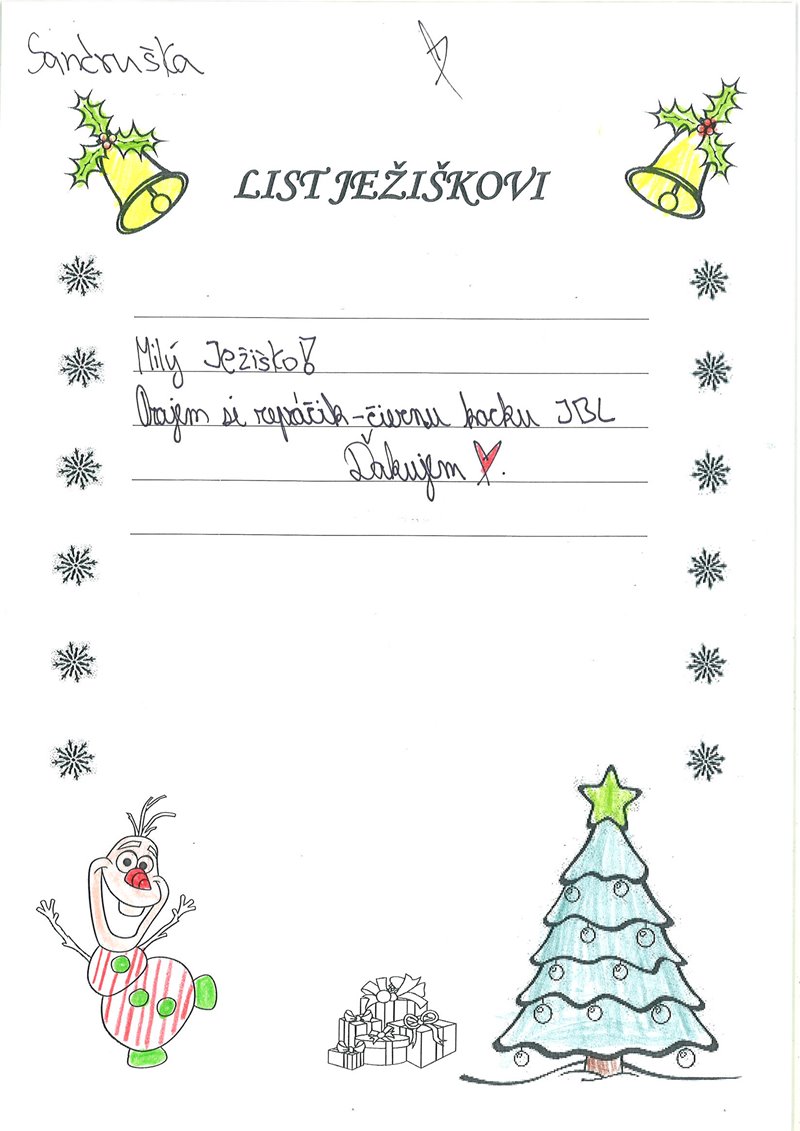 Sandruška
LIST JEŽIŠKOVI
Milý Ježiško!
Prajem si repráčik - čiernu kocku JBL
Ďakujem